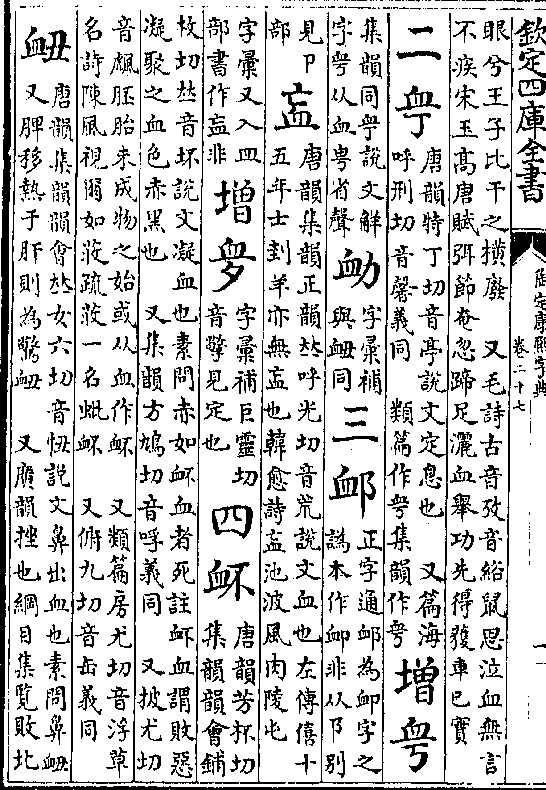 欽定四庫全書
御定康熙字典
卷二十七
眼兮王子比干之橫廢 又毛詩古音攷音綌鼠思泣血無言
不疾宋玉高唐賦弭節奄忽蹄足灑血舉功先得獲車已實
二
唐韻特丁切音亭說文定息也 又篇海
呼刑切音馨義同 類篇作甹集韻作甹
增
集韻同甹說文解
字甹从血甹省聲
字彙補
與衄同
三
正字通䘏為卹字之
譌本作卹非从阝别
見卩
部
衁
唐韻集韻正韻𠀤呼光切音荒說文血也左傳僖十
五年士刲羊亦無衁也韓愈詩衁池波風肉陵屯
字彙又入皿
部書作衁非
增
字彙補巨靈切
音擎見定也
四衃
唐韻芳杯切
集韻韻會鋪
枚切𠀤音坯說文凝血也素問赤如衃血者死註衃血謂敗惡
凝聚之血色赤黑也 又集韻方鳩切音呼義同 又披尤切
音䬌胚胎未成物之始或从血作衃 又類篇房尤切音浮草
名詩陳風視爾如荍疏荍一名蚍衃 又俯九切音缶義同
衄
唐韻集韻韻會𠀤女六切音忸說文鼻出血也素問鼻衄
又脾移熱于肝則為驚衄 又廣韻挫也綱目集覽敗北